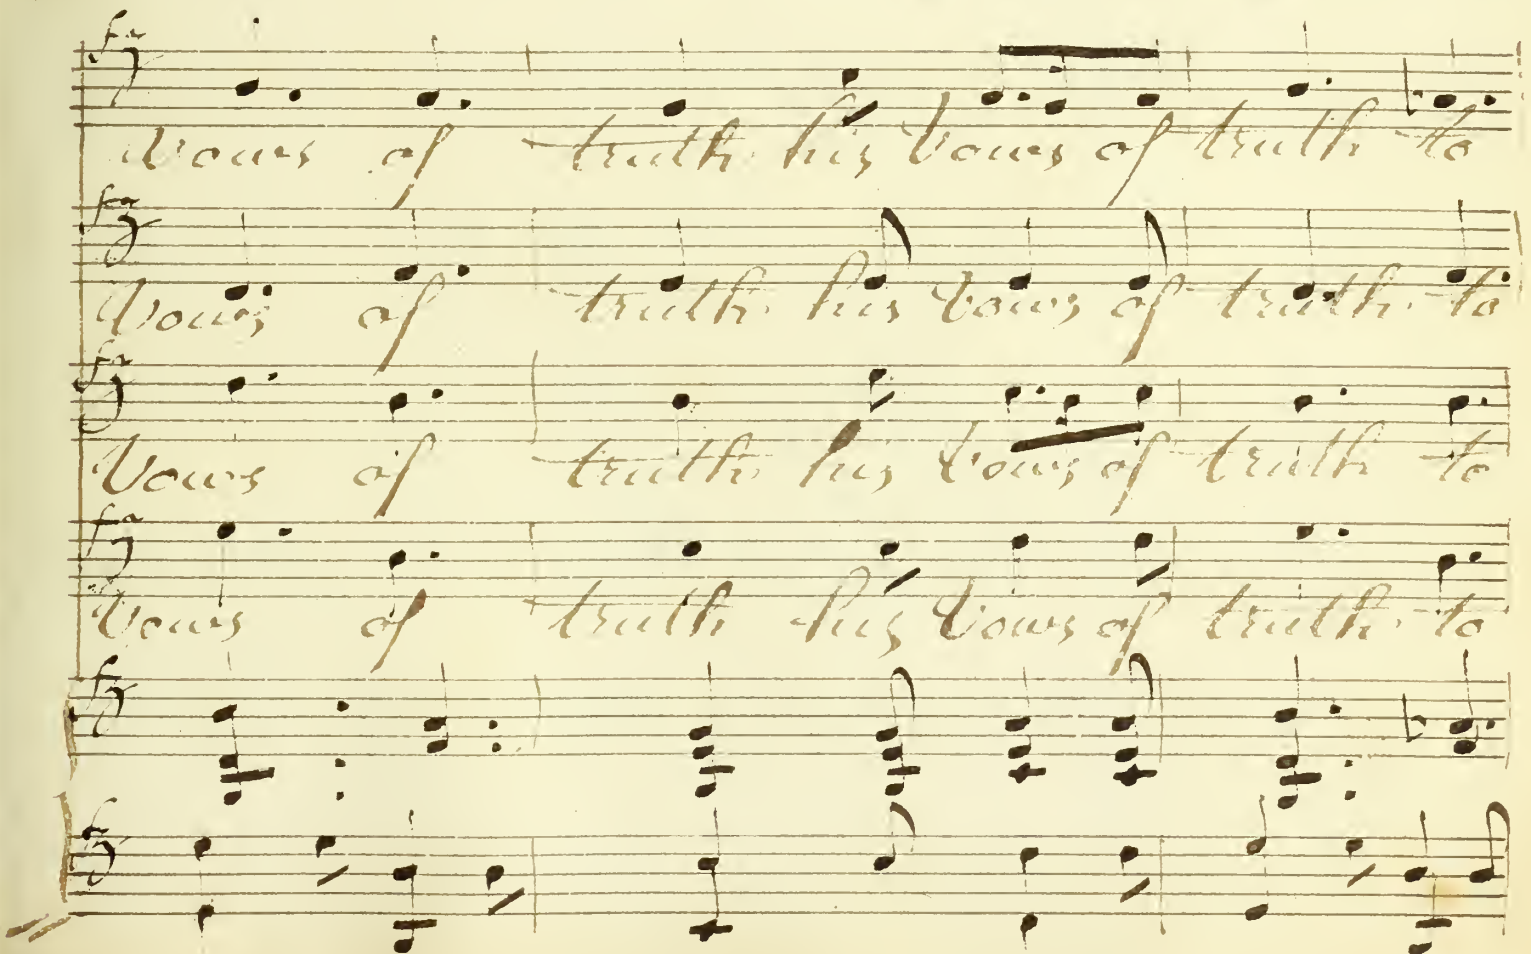 vows of truth his Vows of truth to
Vows of truth his Vows of truth to
Vows of truth his Vows of truth to
Vows of truth his Vows of truth to